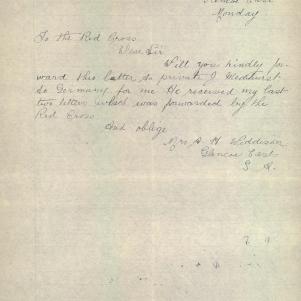 Glencoe East
Monday
To the Red Cross
Dear Sir
Will you kindly for
ward this letter to private J Medhurst
to Germany for me He received my last
two letters which was forwarded by the
Red Cross
And oblige
Mrs A H Widdison
Glencoe East
S. A.